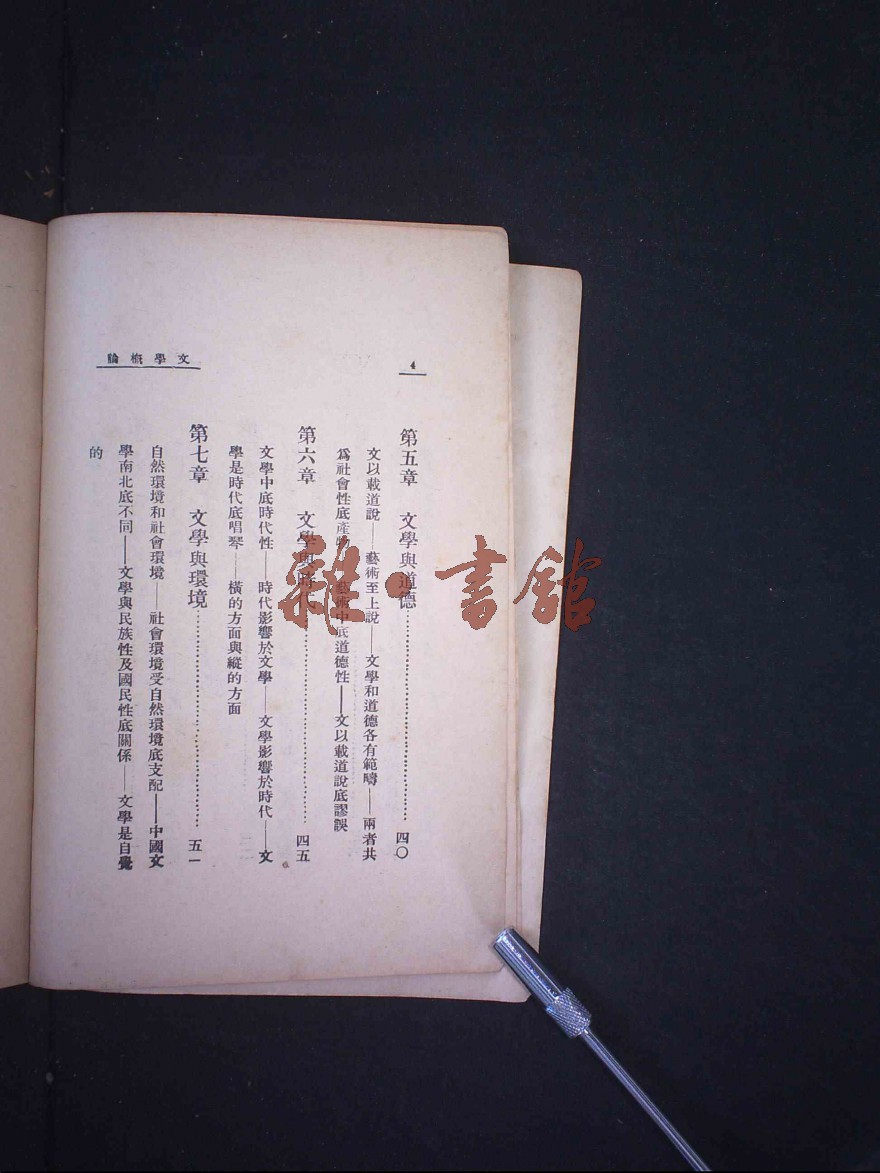 文學概論
4
第五章　文學與道德…………四〇
文以載道說——藝術至上說——文學和道德各有範疇——兩者共
爲社會性底產物——藝術中底道德性——文以載道說底謬誤
第六章　文學與時代…………四五
文學中底時代性——時代影響於文學——文學影響於時代——文
學是時代底唱琴——橫的方面與縱的方面
第七章　文學與環境…………五一
自然環境和社會環境——社會環境受自然環境底支配——中國文
學南北底不同——文學與民族性及國民性底關係——文學是自覺
的
雜·書館